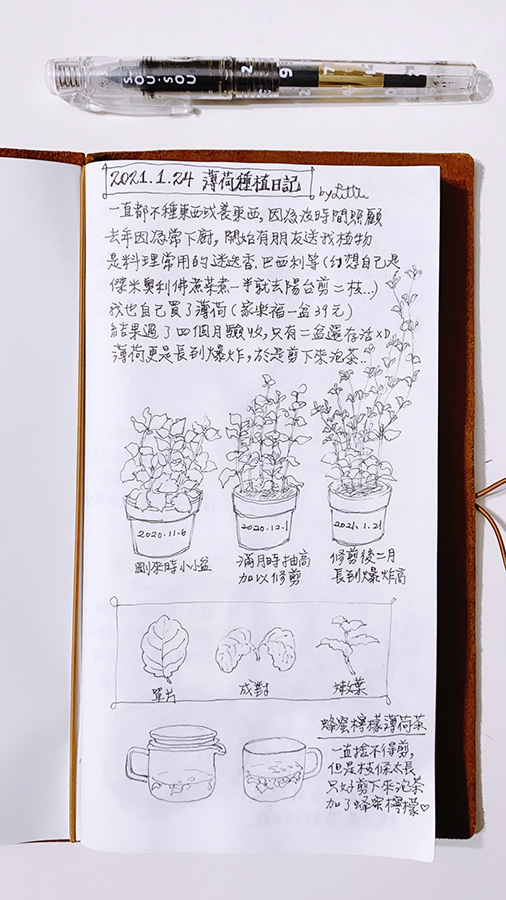 2021.1.24 薄荷種植日記
by Littu
一直都不種東西或養東西,因為沒時間照顧
去年因為常下廚,開始有朋友送我植物
是料理常用的迷迭香.巴西利等(幻想自己是
傑米奧利佛煮菜煮一半就去陽台剪二枝..)
我也自己買了薄荷(家樂福一盆39元)
結果過了四個月驗收,只有二盆還存活XD
薄荷更是長到爆炸,於是剪下來泡茶..
2020.11.6
2020.12.1
2021.1.21
剛來時小小盆
滿月時抽高
加以修剪
修剪後二月
長到爆炸高
單片
成對
嫩葉
蜂蜜檸檬薄荷茶
一直捨不得剪,
但是枝條太長
只好剪下來泡茶
加了蜂蜜檸檬♡